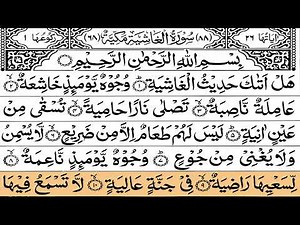 اٰیاتها ٢٦ (٨٨) سُوْرَةُ الْغَاشِيَةِ مَكِّيَّةٌ (٦٨) رکوعها ١
بِسْمِ اللّٰهِ الرَّحْمٰنِ الرَّحِيْمِ
هَلْ اَتٰىكَ حَدِيْثُ الْغَاشِيَةِ ۝ وُجُوْهٌ يَّوْمَئِذٍ خَاشِعَةٌ ۝
عَامِلَةٌ نَّاصِبَةٌ ۝ تَصْلٰى نَارًا حَامِيَةً ۝ تُسْقٰى مِنْ
عَيْنٍ اٰنِيَةٍ ۝ لَيْسَ لَهُمْ طَعَامٌ اِلَّا مِنْ ضَرِيْعٍ ۝ لَّا يُسْمِنُ
وَلَا يُغْنِيْ مِنْ جُوْعٍ ۝ وُجُوْهٌ يَّوْمَئِذٍ نَّاعِمَةٌ ۝
لِّسَعْيِهَا رَاضِيَةٌ ۝ فِيْ جَنَّةٍ عَالِيَةٍ ۝ لَّا تَسْمَعُ فِيْهَا